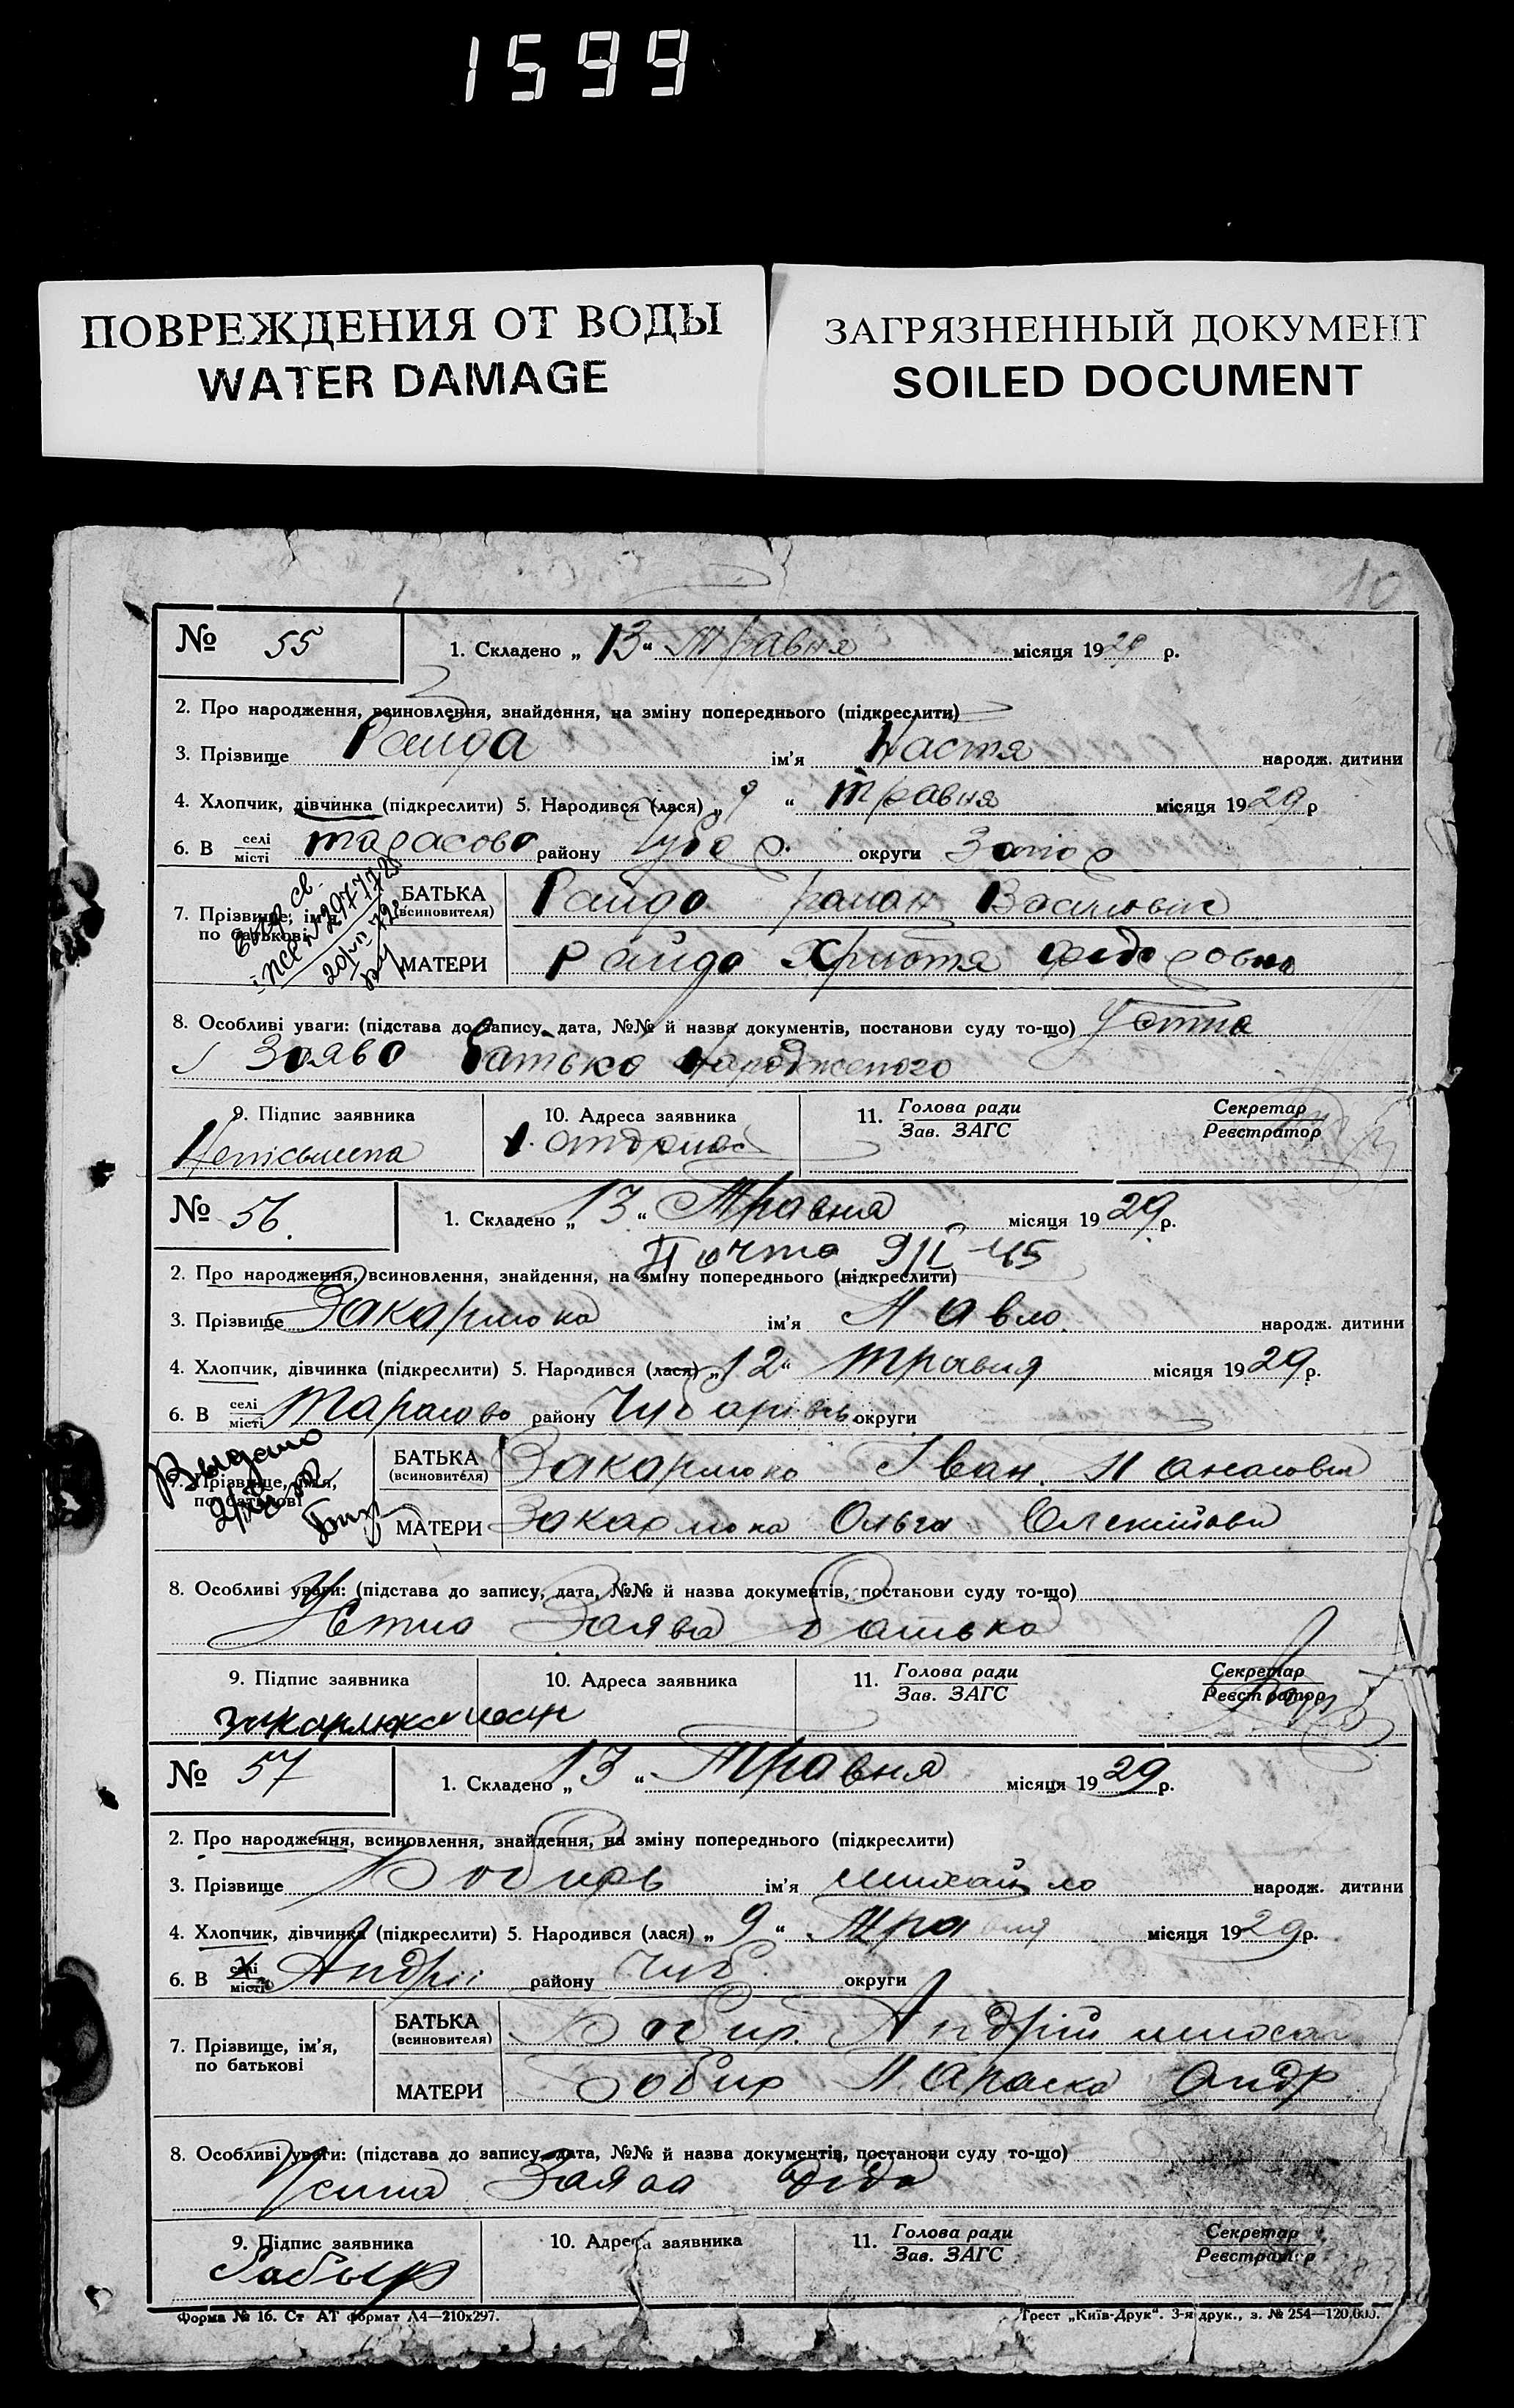 1599
ПОВРЕЖДЕНИЯ ОТ ВОДЫ
WATER DAMAGE
ЗАГРЯЗНЕННЫЙ ДОКУМЕНТ
SOILED DOCUMENT
10
№ 55
1. Складено „ 13 “ Травня місяця 1929 р.
2. Про народження, всиновлення, знайдення, на зміну попереднього (підкреслити)
3. Прізвище Райда ім'я Настя народж. дитини
4. Хлопчик, дівчинка (підкреслити) 5. Народився (лася) „ 9 “ травня місяця 1929 р
6. В селі/місті тарасово району Чуб р. округи Запор
7. Прізвище, ім'я, по батькові
БАТЬКА (всиновителя) Райдо роман Васильович
МАТЕРИ Райдо Христя Федоровно
8. Особливі уваги: (підстава до запису, дата, №№ й назва документів, постанови суду то-що) Устна
Заяво батько народженого
9. Підпис заявника
10. Адреса заявника
11. Голова ради
Зав. ЗАГС
Секретар
Реєстратор
Неписьмена
№ 56.
1. Складено „ 13 “ Травня місяця 1929 р.
Почта 9/II 45
2. Про народження, всиновлення, знайдення, на зміну попереднього (підкреслити)
3. Прізвище Закарлюка ім'я Павло народж. дитини
4. Хлопчик, дівчинка (підкреслити) 5. Народився (лася) „ 12 “ травня місяця 1929 р.
6. В селі/місті Тарасово району Чубарівсь округи
Выдано
7. Прізвище, ім'я, по батькові
БАТЬКА (всиновителя) Закарлюко Іван Панасович
МАТЕРИ Закарлюка Ольга Олексійовн
8. Особливі уваги: (підстава до запису, дата, №№ й назва документів, постанови суду то-що)
Устно Заява батька
9. Підпис заявника
10. Адреса заявника
11. Голова ради
Зав. ЗАГС
Секретар
Реєстратор
Закарлюка
№ 57
1. Складено „ 13 “ Травня місяця 1929 р.
2. Про народження, всиновлення, знайдення, на зміну попереднього (підкреслити)
3. Прізвище Бобирь ім'я Михайло народж. дитини
4. Хлопчик, дівчинка (підкреслити) 5. Народився (лася) „ 9 “ Травня місяця 1929 р.
6. В селі/місті Андрії району Чуб. округи
7. Прізвище, ім'я, по батькові
БАТЬКА (всиновителя) Бобир Андрій михай
МАТЕРИ Бобир Параска Андр
8. Особливі уваги: (підстава до запису, дата, №№ й назва документів, постанови суду то-що)
Усна Заява діда
9. Підпис заявника
10. Адреса заявника
11. Голова ради
Зав. ЗАГС
Секретар
Реєстратор
Форма № 16. Ст АТ формат А4—210х297.
Трест „Київ-Друк“. 3-я друк., з. № 254—120,000.